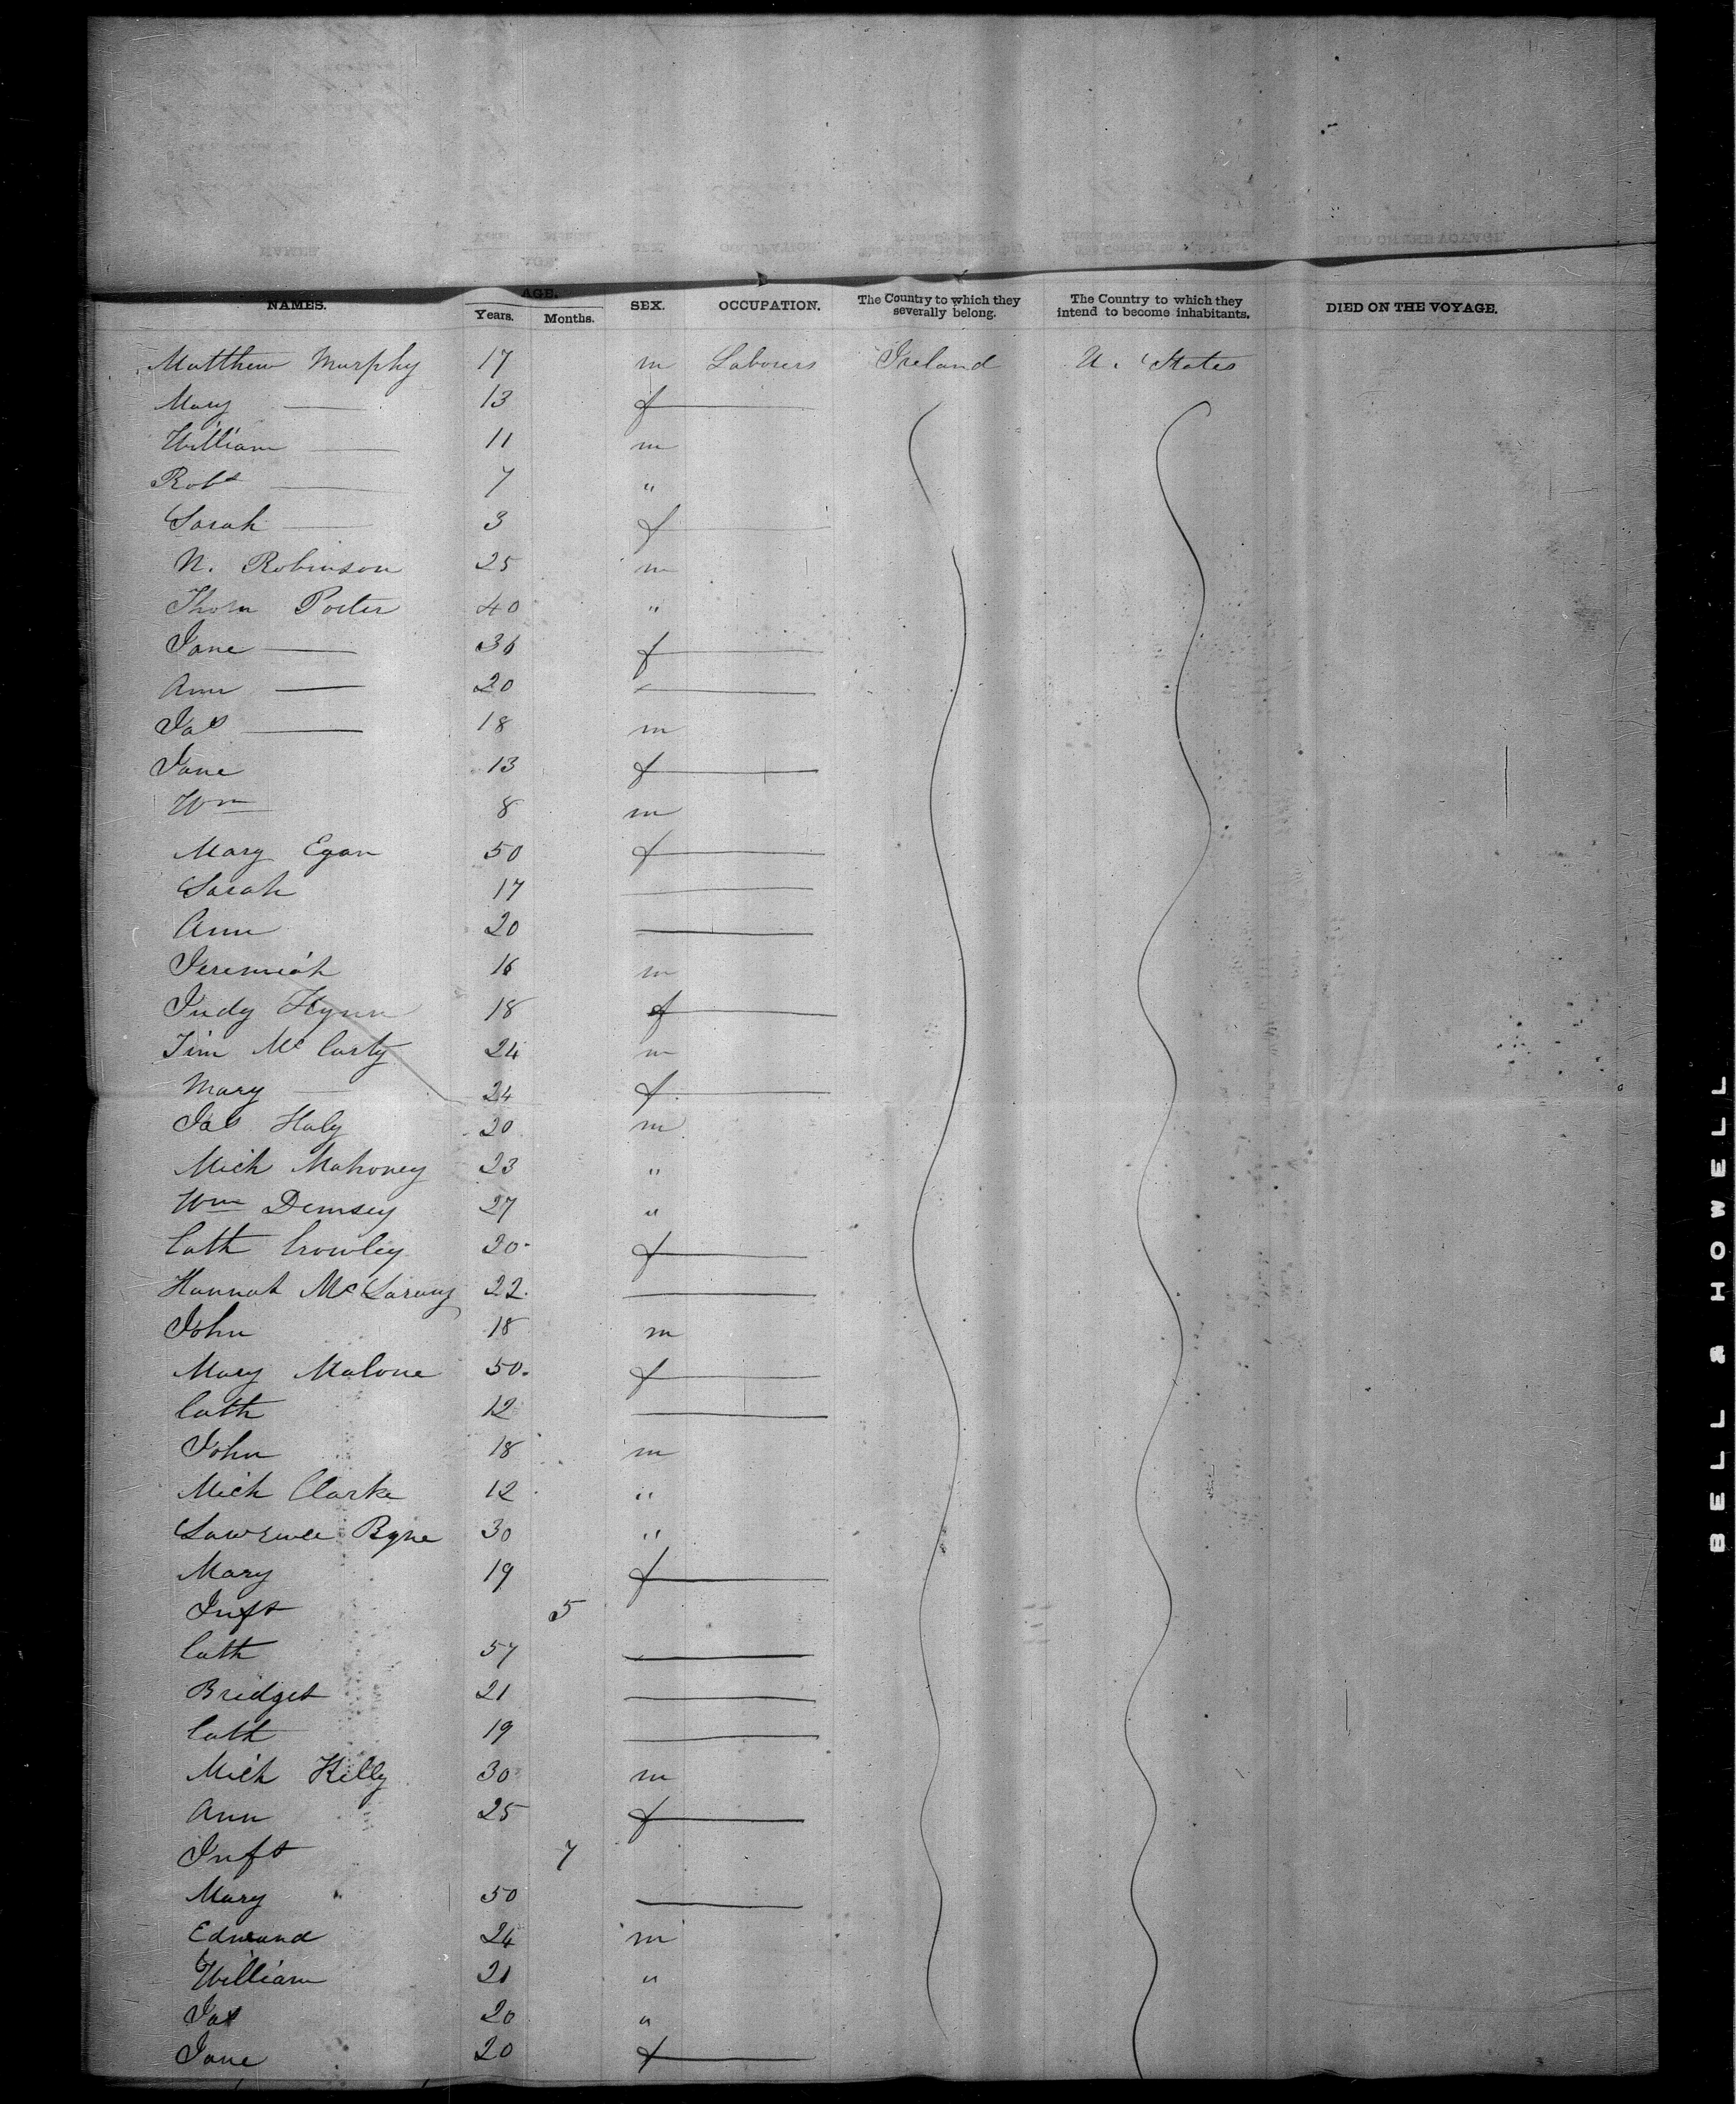 NAMES. AGE. Years. Months. SEX. OCCUPATION. The Country to which they severally belong. The Country to which they intend to become inhabitants. DIED ON THE VOYAGE.
Matthew Murphy 17 m Labourers Ireland U. States
Mary — 13 f
William — 11 m
Robt — 7 "
Sarah — 3 f
N. Robinson 25 m
Thom Porter 40 "
Jane — 36 f
Ann — 20
Jas — 18 m
Jane 13 f
Wm 8 m
Mary Egan 50 f
Sarah 17
Ann 20
Jeremiah 16 m
Judy Flynn 18 f
Tim McCarty 24 m
Mary — 24 f
Jas Haly 20 m
Mich Mahoney 23 "
Wm Demsey 27 "
Cath Crowley 20 f
Hannah 22
John 18 m
Mary Malone 50 f
Cath 12
John 18 m
Mich Clarke 12 "
Lawrence Byne 30 "
Mary 19 f
Inft 5
Cath 57
Bridget 21
Cath 19
Mich Kelly 30 m
Ann 25 f
Inft 7
Mary 50
Edmund 24 m
William 21 "
Jas 20 "
Jane 20 f
BELL & HOWELL